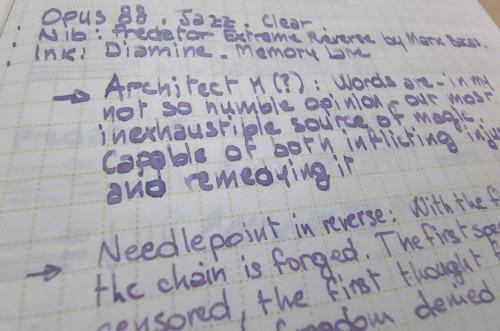 Opus 88. Jazz. Clear
Nib: Predator Extreme Reverse by Mark
Ink: Diamine - Memory Lane
→ Architect M (?) : Words are - in my
not so humble opinion - our most
inexhaustible source of magic.
Capable of both inflicting
and remedying it
→ Needlepoint in reverse: With the
the chain is forged. The first
censored, the first thought
freedom denied